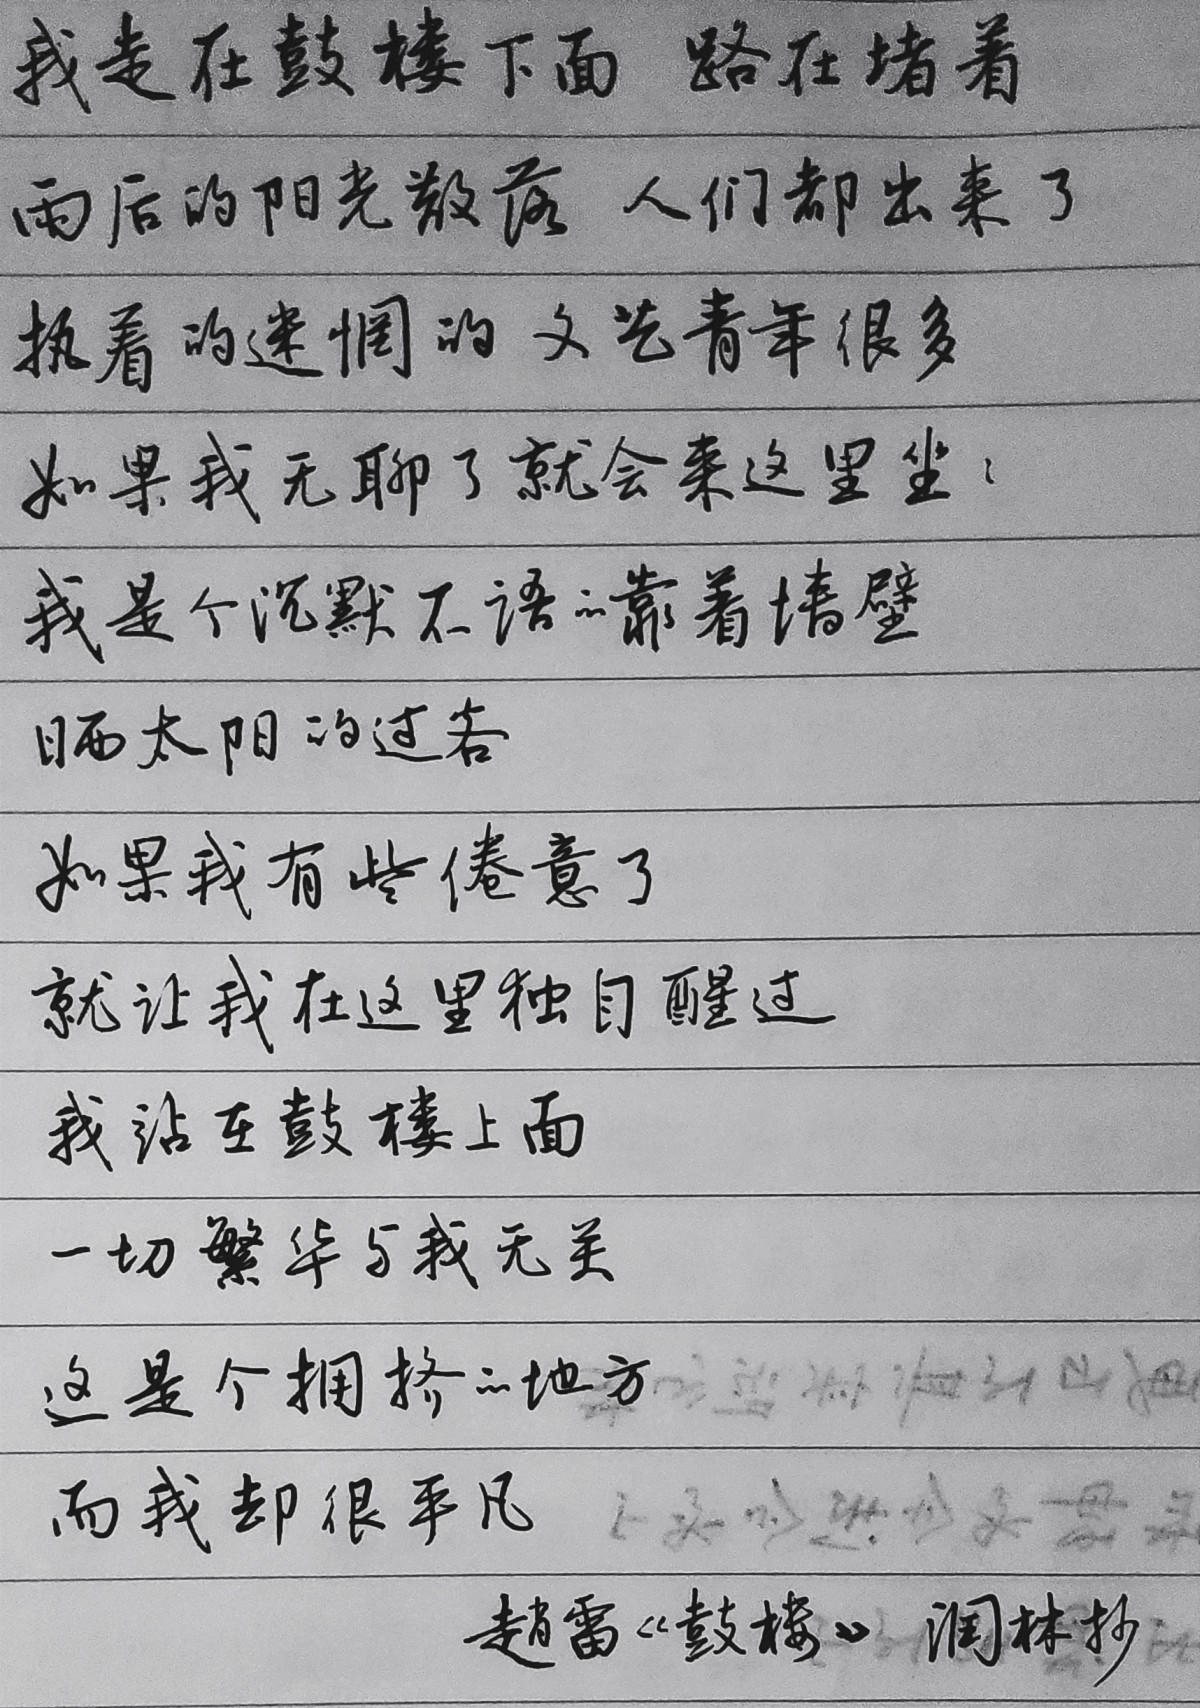 我走在鼓楼下面 路在堵着
雨后的阳光散落 人们都出来了
执着的迷惘的文艺青年很多
如果我无聊了就会来这里坐坐
我是个沉默不语的靠着墙壁
晒太阳的过客
如果我有些倦意了
就让我在这里独自醒过
我站在鼓楼上面
一切繁华与我无关
这是个拥挤的地方
而我却很平凡
赵雷《鼓楼》 润林抄